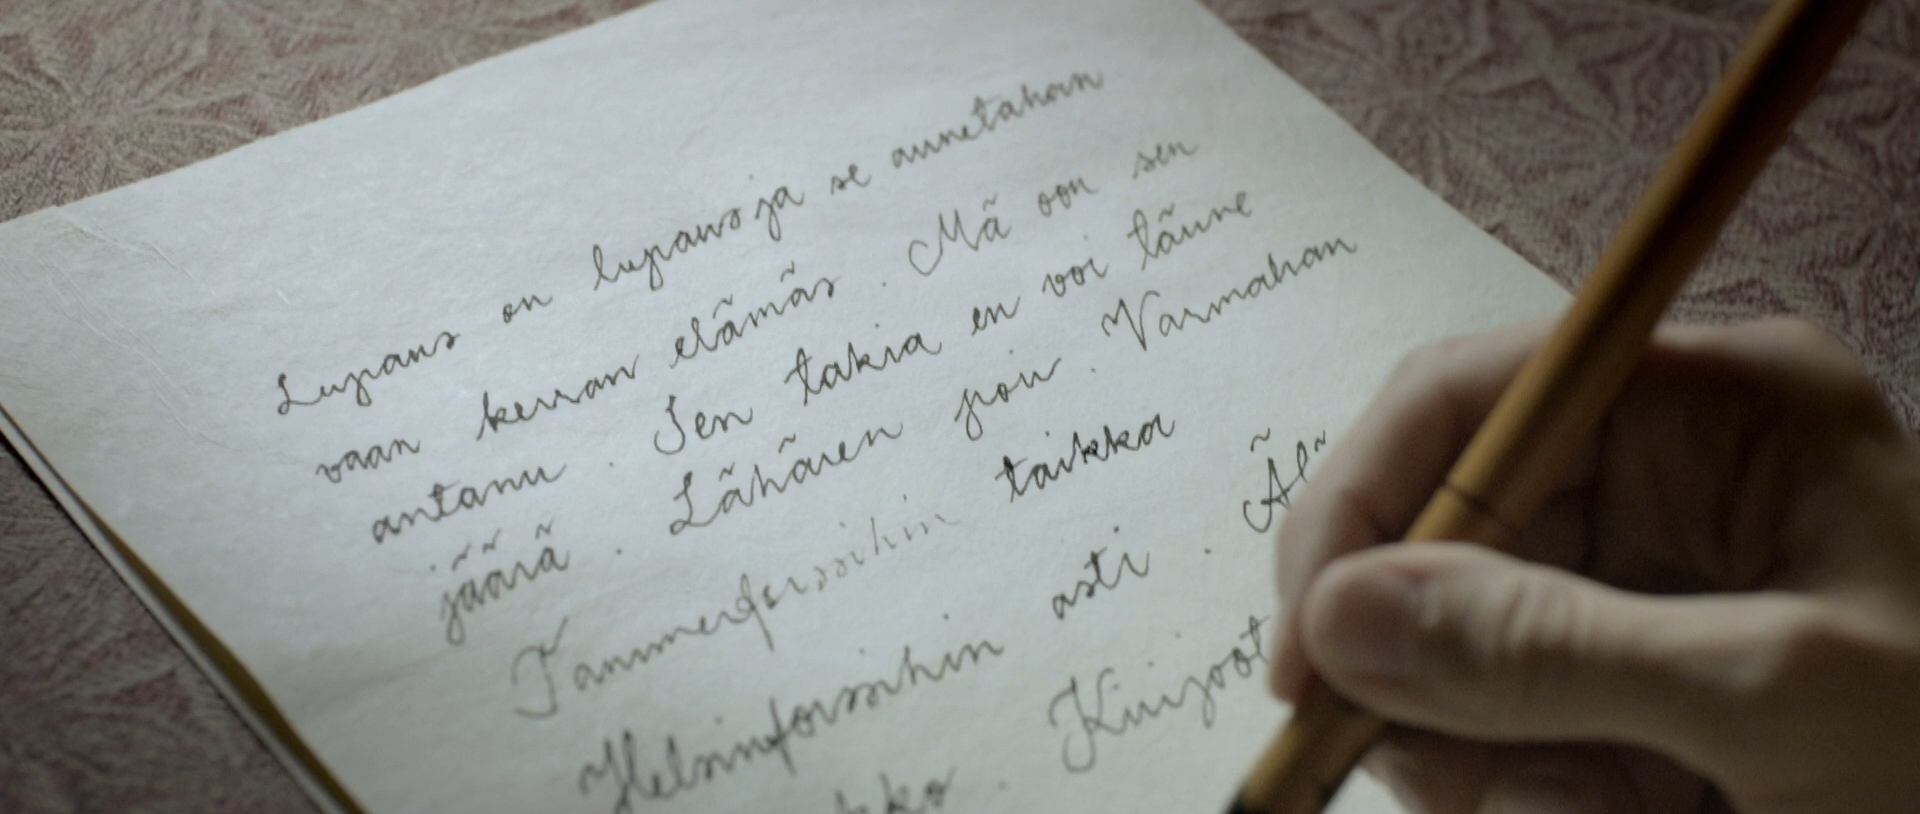 Lupaus on lupaus ja se annetahan
vaan kerran elämäs. Mä oon sen
antanu. Sen takia en voi tänne
jäärä. Lähären pois. Varmahan
Tammerforssihin taikka
Helsinforssihin asti. Äl
kko. Kirijoot